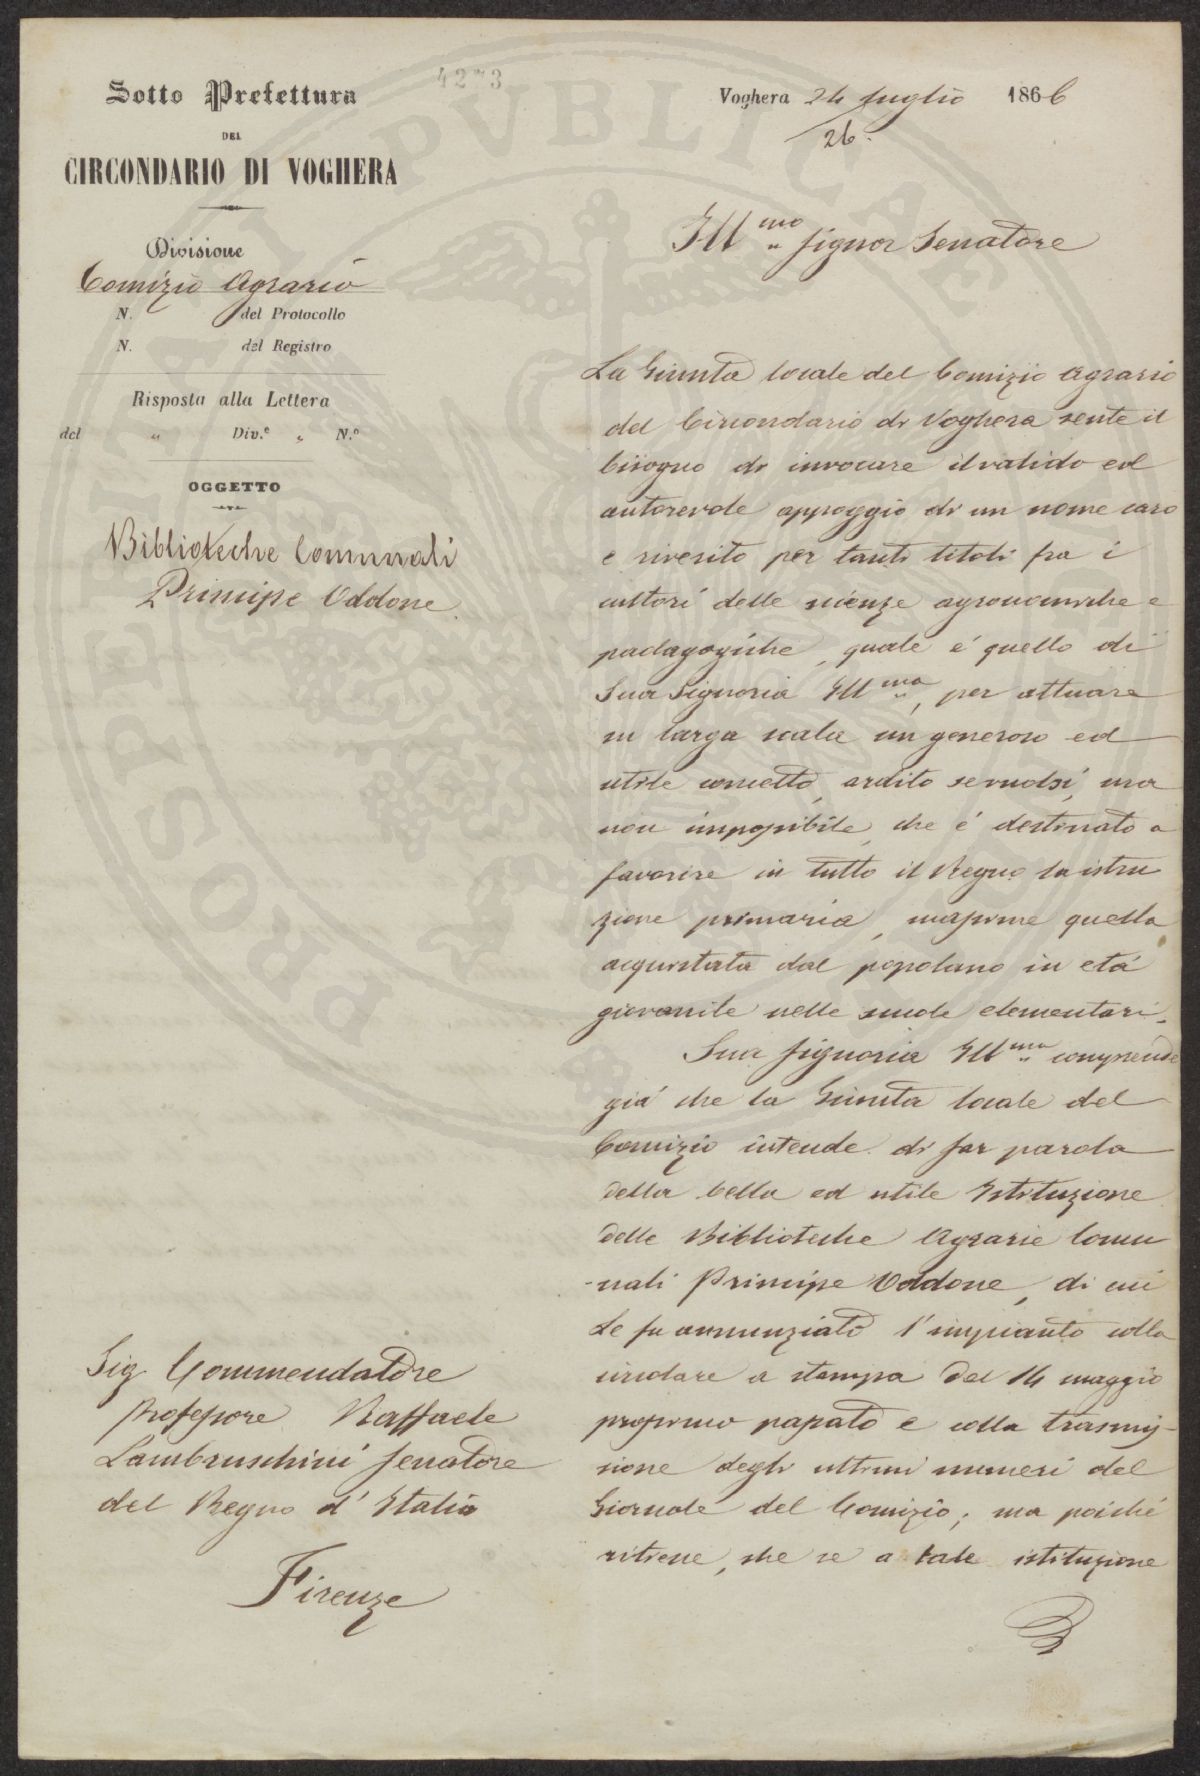 4273
Sotto Prefettura
DEL
CIRCONDARIO DI VOGHERA
Divisione
Comizio Agrario
N. del Protocollo
N. del Registro
Risposta alla Lettera
del " Div.e " N.o
OGGETTO
Biblioteche Comunali
Principe Oddone
Voghera 24 luglio 1866
26.
Ill.mo Signor Senatore
La Giunta locale del Comizio Agrario
del Circondario di Voghera sente il
bisogno di invocare il valido ed
autorevole appoggio di un nome caro
e riverito per tanti titoli fra i
cultori delle scienze agronomiche e
padagogiche, quale é quello di
Sua Signoria Ill.ma, per attuare
su larga scala un generoso ed
utile concetto, ardito se vuolsi, ma
non impossibile, che é destinato a
favorire in tutto il Regno la istru
zione primaria, massime quella
acquistata dal popolano in etá
giovanile nelle scuole elementari.
Sua Signoria Ill.ma comprende
giá che la Giunta locale del
Comizio intende di far parola
della bella ed utile Istituzione
delle Biblioteche Agrarie Comu
-nali Principe Oddone, di cui
Le fu annunziato l'impianto colla
circolare a stampa del 14 maggio
prossimo passato e colla trasmis-
sione degli ultimi numeri del
Giornale del Comizio; ma poiché
ritiene, che se a tale istituzione
Sig Commendatore
Professore Raffaele
Lambruschini Senatore
del Regno d'Italia
Firenze
PROSPERITATI PVBLICAE